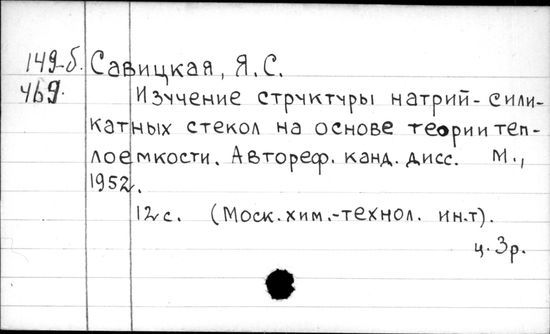 149-б. Савицкая, Я.С.
469. Изучение структуры натрий-сили-
катных стекол на основе теории теп-
лоемкости. Автореф. канд. дисс. М.,
1952.
12 с. (Моск. хим.-технол. ин.т).
ц. 3р.